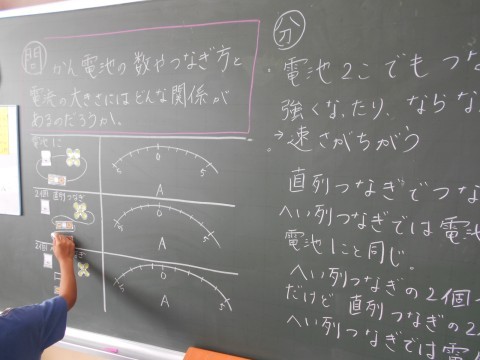 問
かん電池の数やつなぎ方と
電流の大きさにはどんな関係が
あるのだろうか。
電池1こ
5 0 5
A
2個 直列つなぎ
5 0 5
A
2個
5 0 5
A
分
・電池2こでもつな
強くなったり、ならな
→速さがちがう
直列つなぎでつな
へい列つなぎでは電池
電池1こと同じ。
へい列つなぎの2個
だけど直列つなぎの2
へい列つなぎでは電